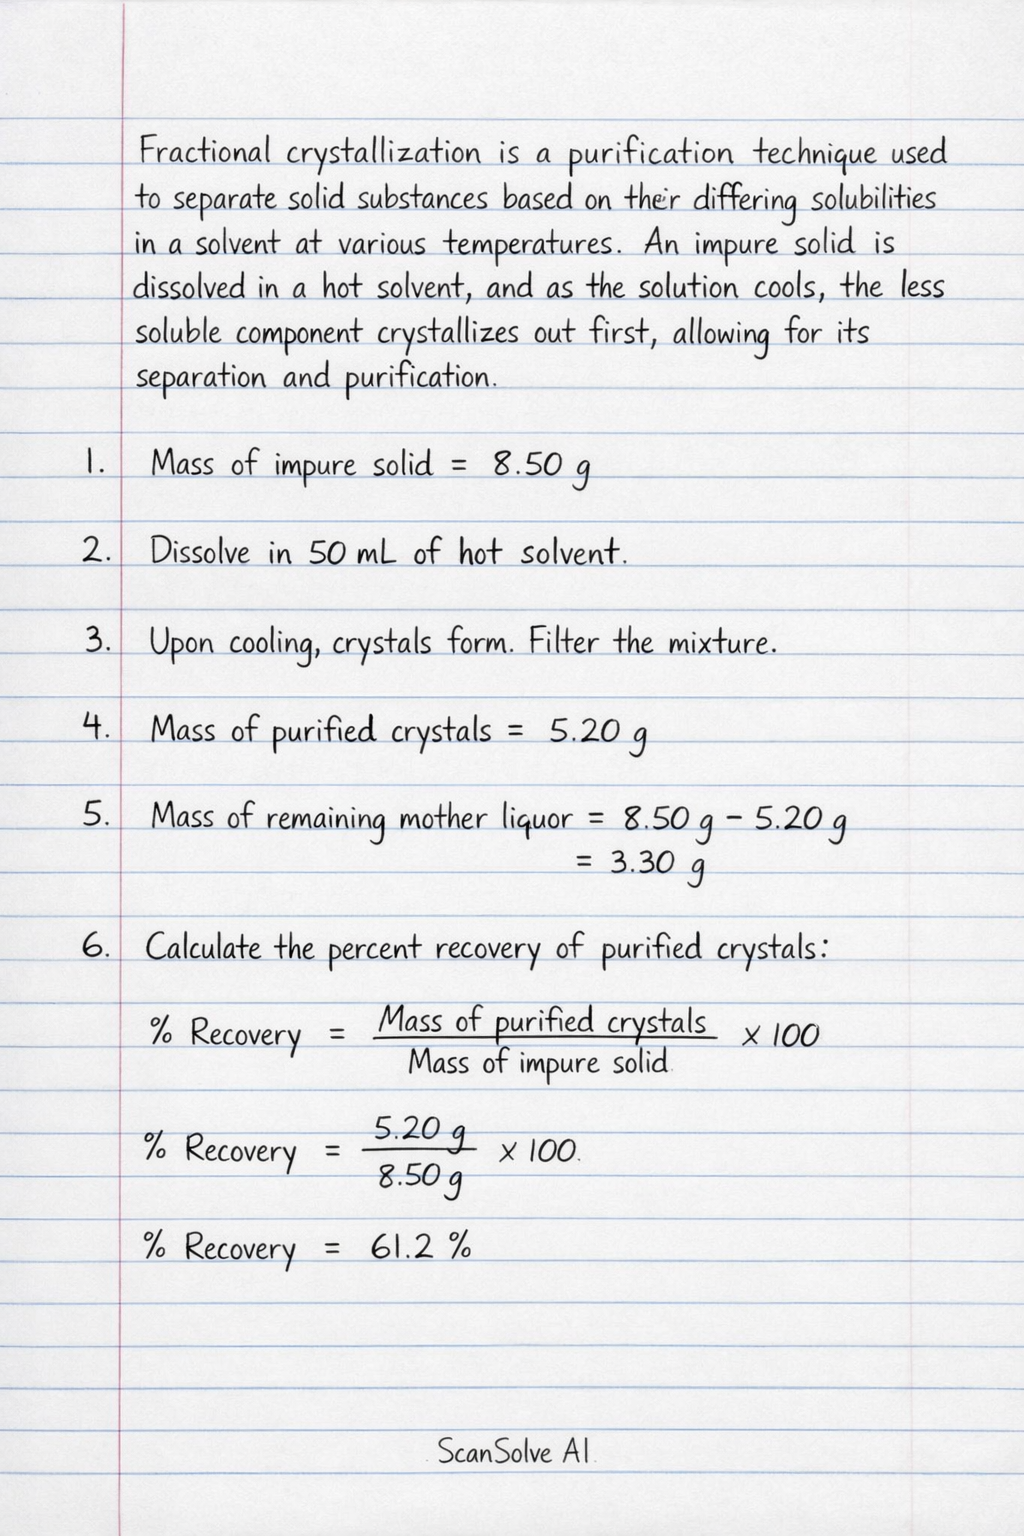 Fractional crystallization is a purification technique used
to separate solid substances based on their differing solubilities
in a solvent at various temperatures. An impure solid is
dissolved in a hot solvent, and as the solution cools, the less
soluble component crystallizes out first, allowing for its
separation and purification.
1. Mass of impure solid = 8.50 g
2. Dissolve in 50 mL of hot solvent.
3. Upon cooling, crystals form. Filter the mixture.
4. Mass of purified crystals = 5.20 g
5. Mass of remaining mother liquor = 8.50 g - 5.20 g
= 3.30 g
6. Calculate the percent recovery of purified crystals:
% Recovery = Mass of purified crystals / Mass of impure solid x 100
% Recovery = 5.20 g / 8.50 g x 100
% Recovery = 61.2 %
ScanSolve AI